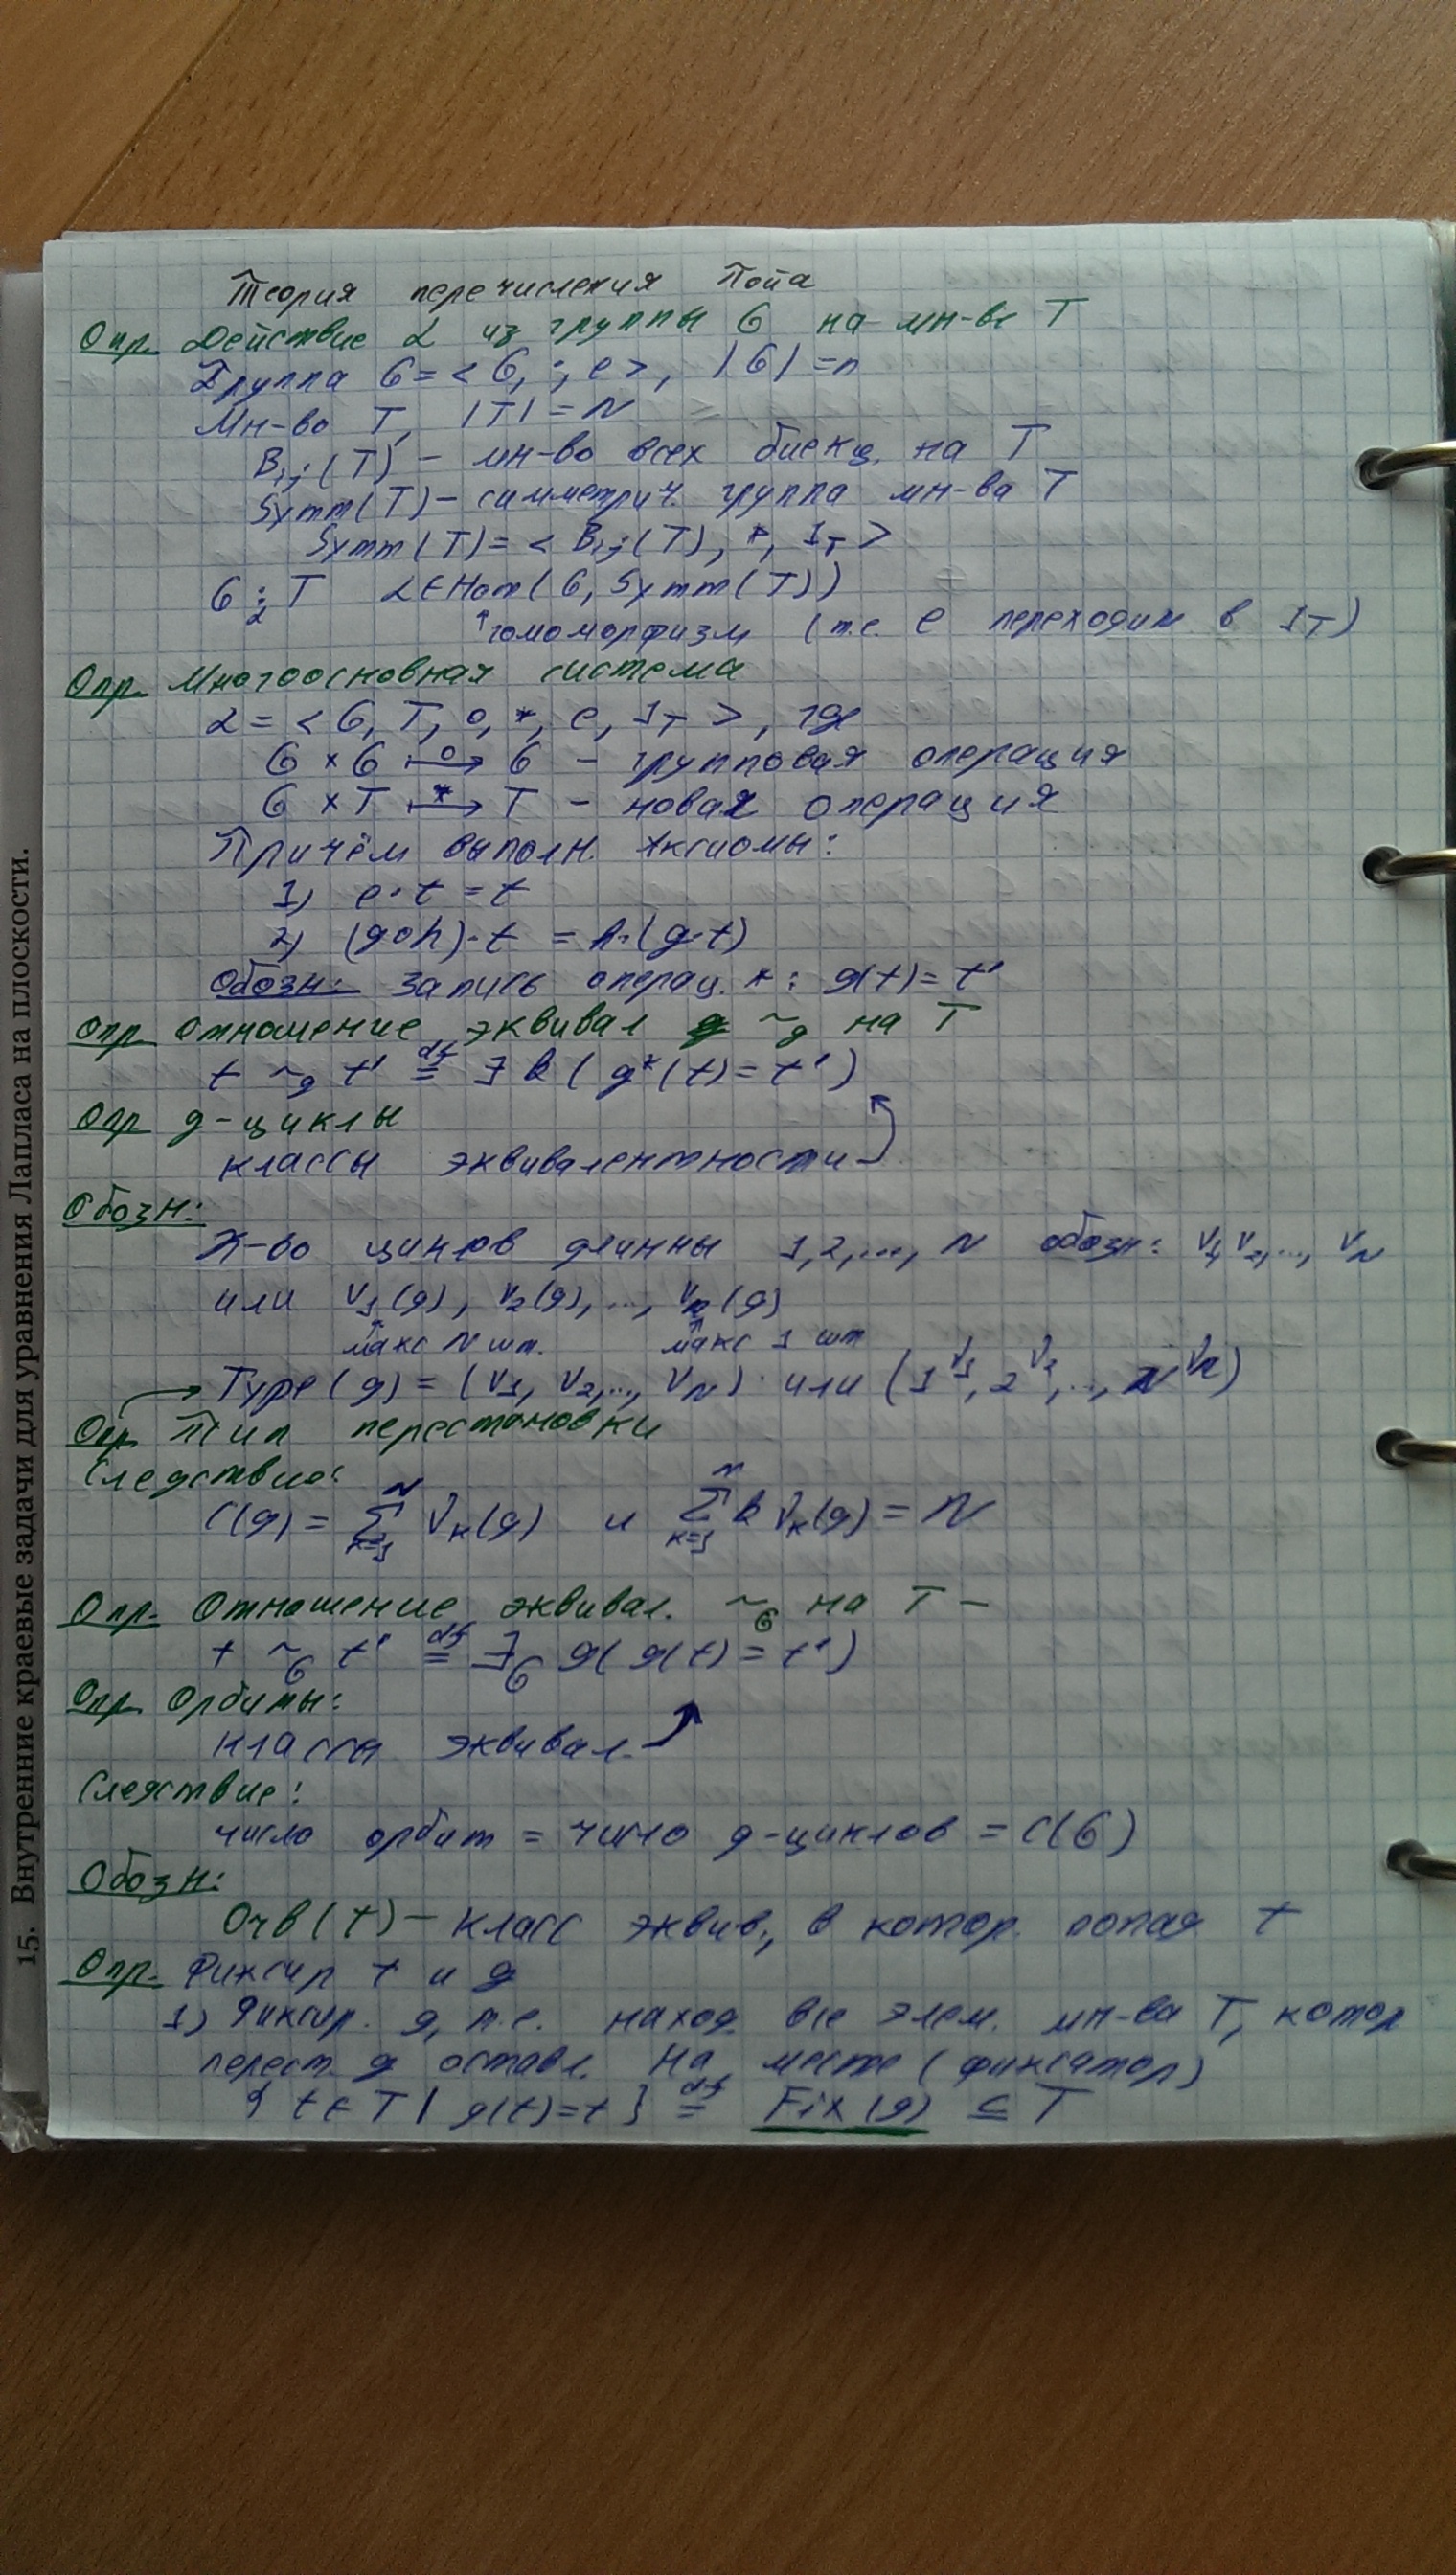 Теория перечисления Пойа
Опр. Действие α из группы G на мн-ве T
Группа G = < G, ·, e >, |G| = n
Мн-во T, |T| = N
Bij(T) - мн-во всех биекц. на T
Symm(T) - симметрич. группа мн-ва T
Symm(T) = < Bij(T), *, 1_T >
G : T α ∈ Hom(G, Symm(T))
α
↑ гомоморфизм (т.е. e переходит в 1_T)
Опр. Многоосновная система
α = < G, T, o, *, e, 1_T >, где
G × G ↦o G - групповая операция
G × T ↦* T - новая операция
Причём выполн. аксиомы:
1) e · t = t
2) (g o h) · t = h · (g · t)
Обозн: запись операц. * : g(t) = t'
Опр отношение эквивал ~g на T
t ~g t' df= ∃ k ( g^k(t) = t' )
Опр g-циклы
классы эквивалентности
Обозн:
К-во циклов длинны 1, 2, ..., N обозн: ν1, ν2, ..., νN
или ν1(g), ν2(g), ..., νn(g)
макс N шт. макс 1 шт
Type(g) = (ν1, ν2, ..., νN) или (1^ν1, 2^ν2, ..., N^νn)
Опр Тип перестановки
Следствие:
C(g) = Σ_{k=1}^N νk(g) и Σ_{k=1}^N k νk(g) = N
Опр. Отношение эквивал. ~G на T -
t ~G t' df= ∃G g( g(t) = t' )
Опр орбиты:
классы эквивал.
Следствие:
число орбит = число g-циклов = C(G)
Обозн:
Orb(t) - класс эквив., в котор. попал t
Опр. Фиксир t и g
1) Фиксир. g, т.е. наход. все элем. мн-ва T, котор
перест. g оставл. на месте (фиксатор)
{ t ∈ T | g(t) = t } df= Fix(g) ⊆ T
15. Внутренние краевые задачи для уравнения Лапласа на плоскости.